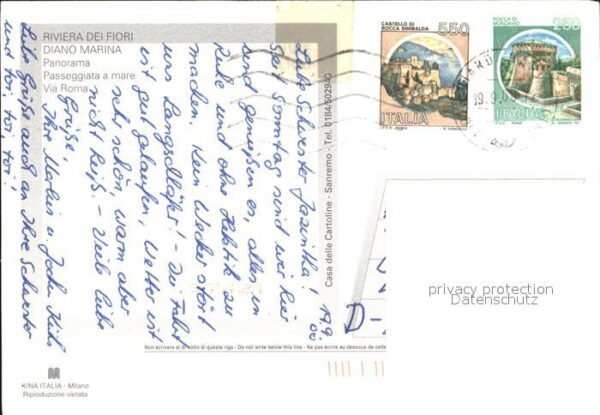 RIVIERA DEI FIORI
DIANO MARINA
Panorama
Passeggiata a mare
Via Roma
CASTELLO DI
ROCCA SINIBALDA
550
ITALIA
ROCCA DI
MONDAVIO
250
ITALIA
19.9.
17.9.
00
Liebe Schwester Jacintha!
Seit Sonntag sind wir hier
und genießen es, alles in
Ruhe und ohne Hektik zu
machen. Kein Wecker stört
uns Langschläfer! - Die Fahrt
ist gut gelaufen, Wetter ist
sehr schön, warm aber
nicht heiß. - Viele liebe
Grüße,
Ihre Marlies u. Jochen
Liebe Grüße auch an Ihre Schwester
und toi, toi, toi!
D-
Casa delle Cartoline - Sanremo - Tel. 0184/502940
Non scrivere al di sotto di questa riga - Do not write below this line - Ne pas écrire au-dessous de cette
privacy protection
Datenschutz
KINA ITALIA - Milano
Riproduzione vietata